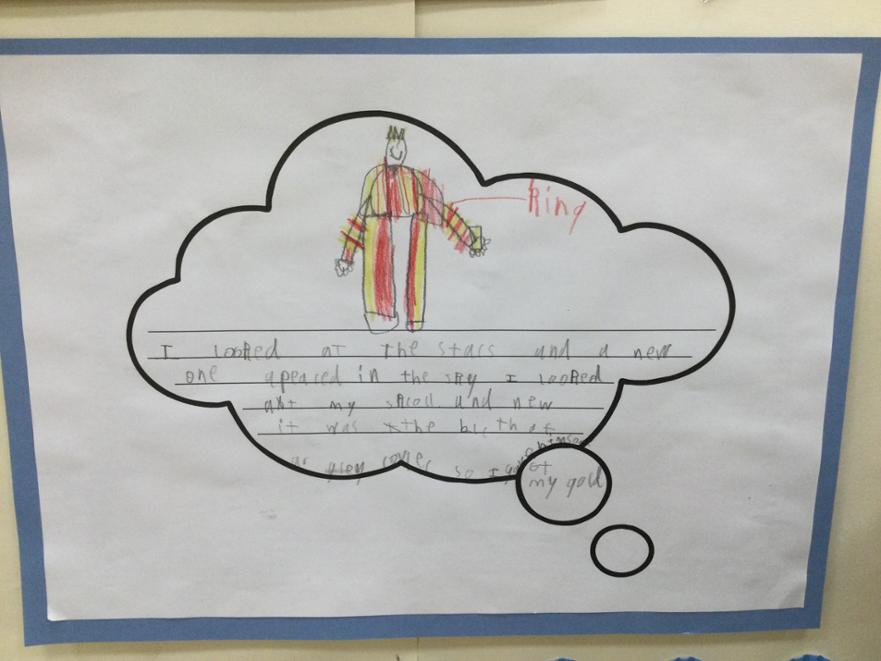 King
I looked at the stars and a new
one apeared in the sky I looked
at my scroll and new
it was the birth of
so I
my gold